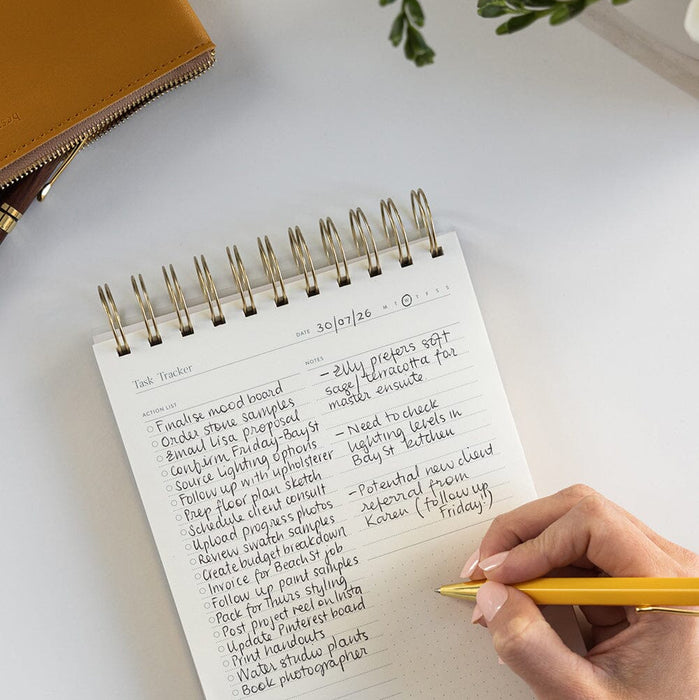 DATE 30/07/26 M T W T F S S
Task Tracker
ACTION LIST
Finalise mood board
Order stone samples
Email Lisa proposal
Confirm Friday-Bay St
Source lighting options
Follow up with upholsterer
Prep floor plan sketch
Schedule client consult
Upload progress photos
Review swatch samples
Create budget breakdown
Invoice for Beach St job
Follow up paint samples
Pack for Thurs styling
Post project reel on Insta
Update Pinterest board
Print handouts
Water studio plants
Book photographer
NOTES
- Elly prefers soft
sage/terracotta for
master ensuite.
- Need to check
lighting levels in
Bay St kitchen
- Potential new client
referral from
Karen (follow up
Friday.)